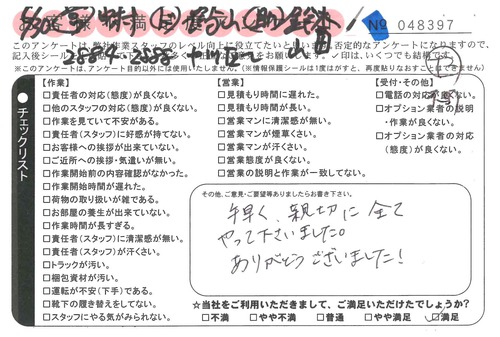 お客様満足
No 048397
このアンケートは、弊社作業スタッフのレベル向上に役立てたいと
否定的なアンケートになりますので、
※このアンケートは、アンケート目的以外には使用いたしません。(※情報保護シールは1度はがすと、再度貼りなおすことはできません)
チェックリスト
【作業】
□責任者の対応(態度)が良くない。
□他のスタッフの対応(態度)が良くない。
□作業を見ていて不安がある。
□責任者(スタッフ)に好感が持てない。
□お客様への挨拶が出来ていない。
□ご近所への挨拶・気遣いが無い。
□作業開始前の内容確認がなかった。
□作業開始時間が遅れた。
□荷物の取り扱いが雑である。
□お部屋の養生が出来ていない。
□作業時間が長すぎる。
□責任者(スタッフ)に清潔感が無い。
□責任者(スタッフ)が汗くさい。
□トラックが汚い。
□梱包資材が汚い。
□運転が不安(下手)である。
□靴下の履き替えをしてない。
□スタッフにやる気がみられない。
【営業】
□見積もり時間に遅れた。
□見積もり時間が長い。
□営業マンに清潔感が無い。
□営業マンが煙草くさい。
□営業マンが汗くさい。
□営業態度が良くない。
□営業の説明と作業が一致してない。
【受付・その他】
□電話の対応が良くない。
□オプション業者の説明
・作業が良くない。
□オプション業者の対応
(態度)が良くない。
その他、ご意見・ご要望等ありましたらお書き下さい。
手早く、親切に全て
やって下さいました。
ありがとうございました!
☆当社をご利用いただきまして、ご満足いただけたでしょうか?
□不満 □やや不満 □普通 □やや満足 ☑満足